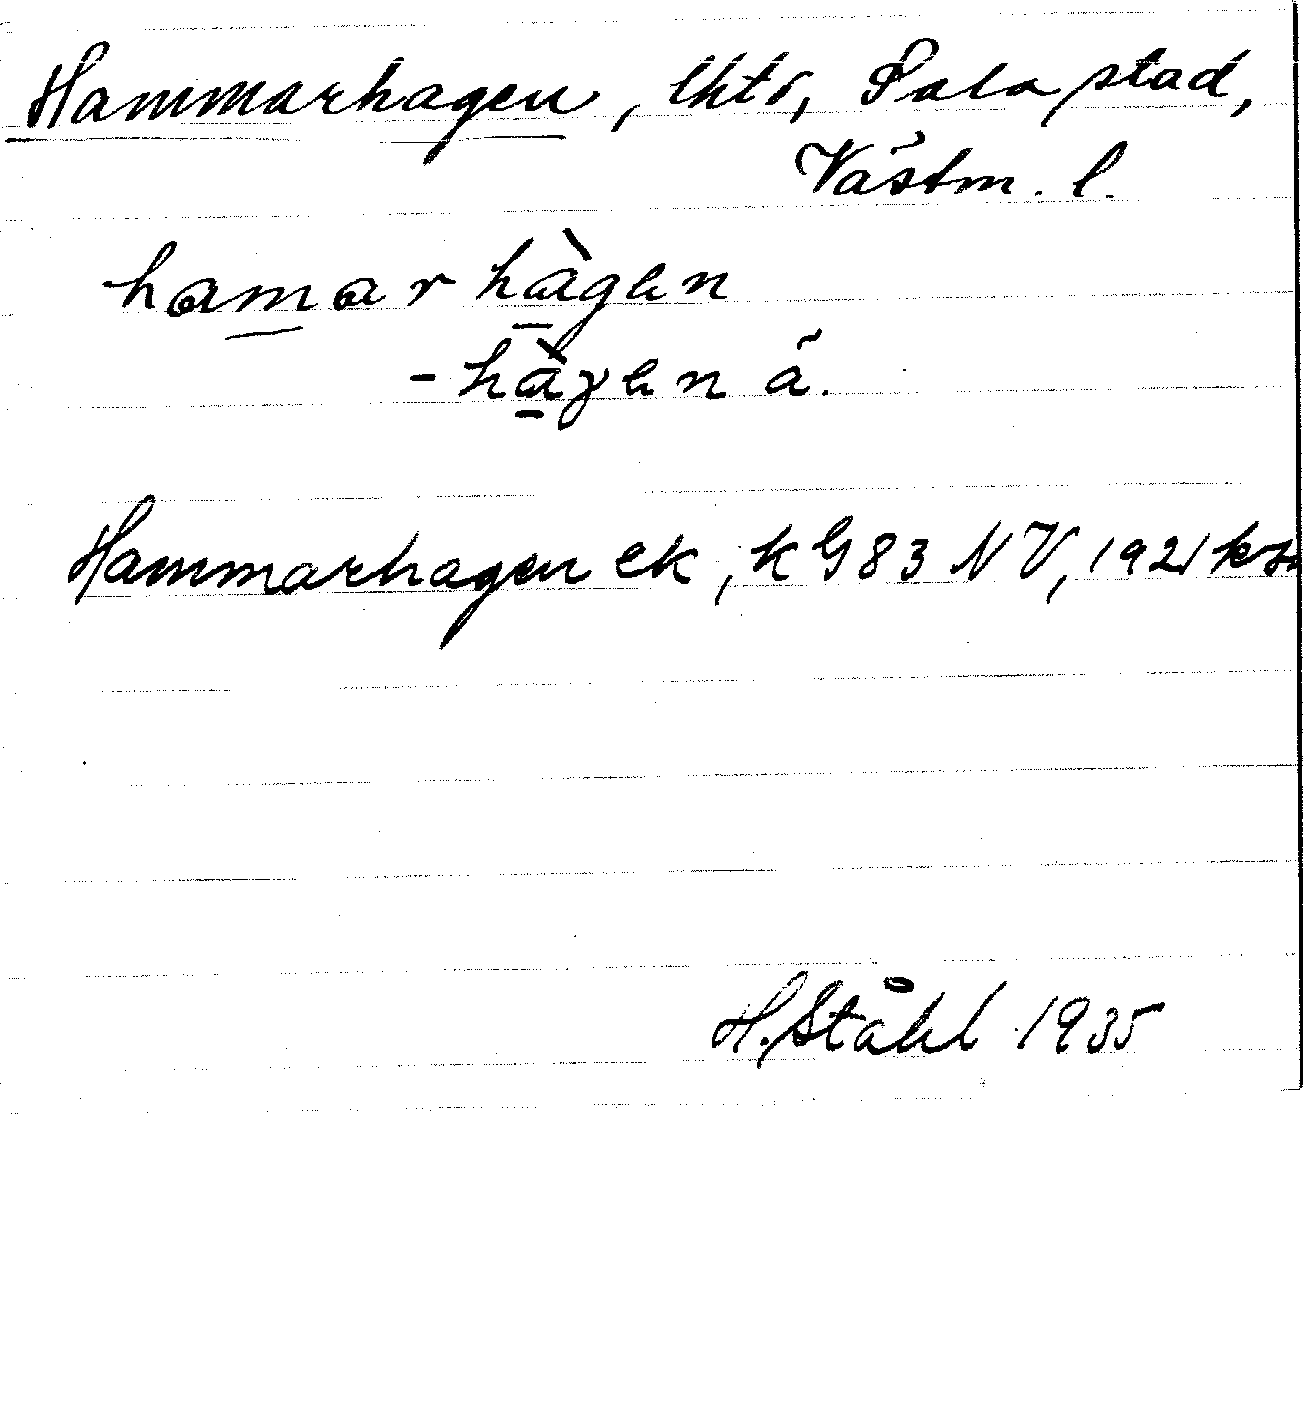 Hammarhagen, lhtr, Sala stad,
Västm. l.
hamarhàgen
-hàgen ä.
Hammarhagen ek, k G 83 NV, 1921
H. Ståhl 1935